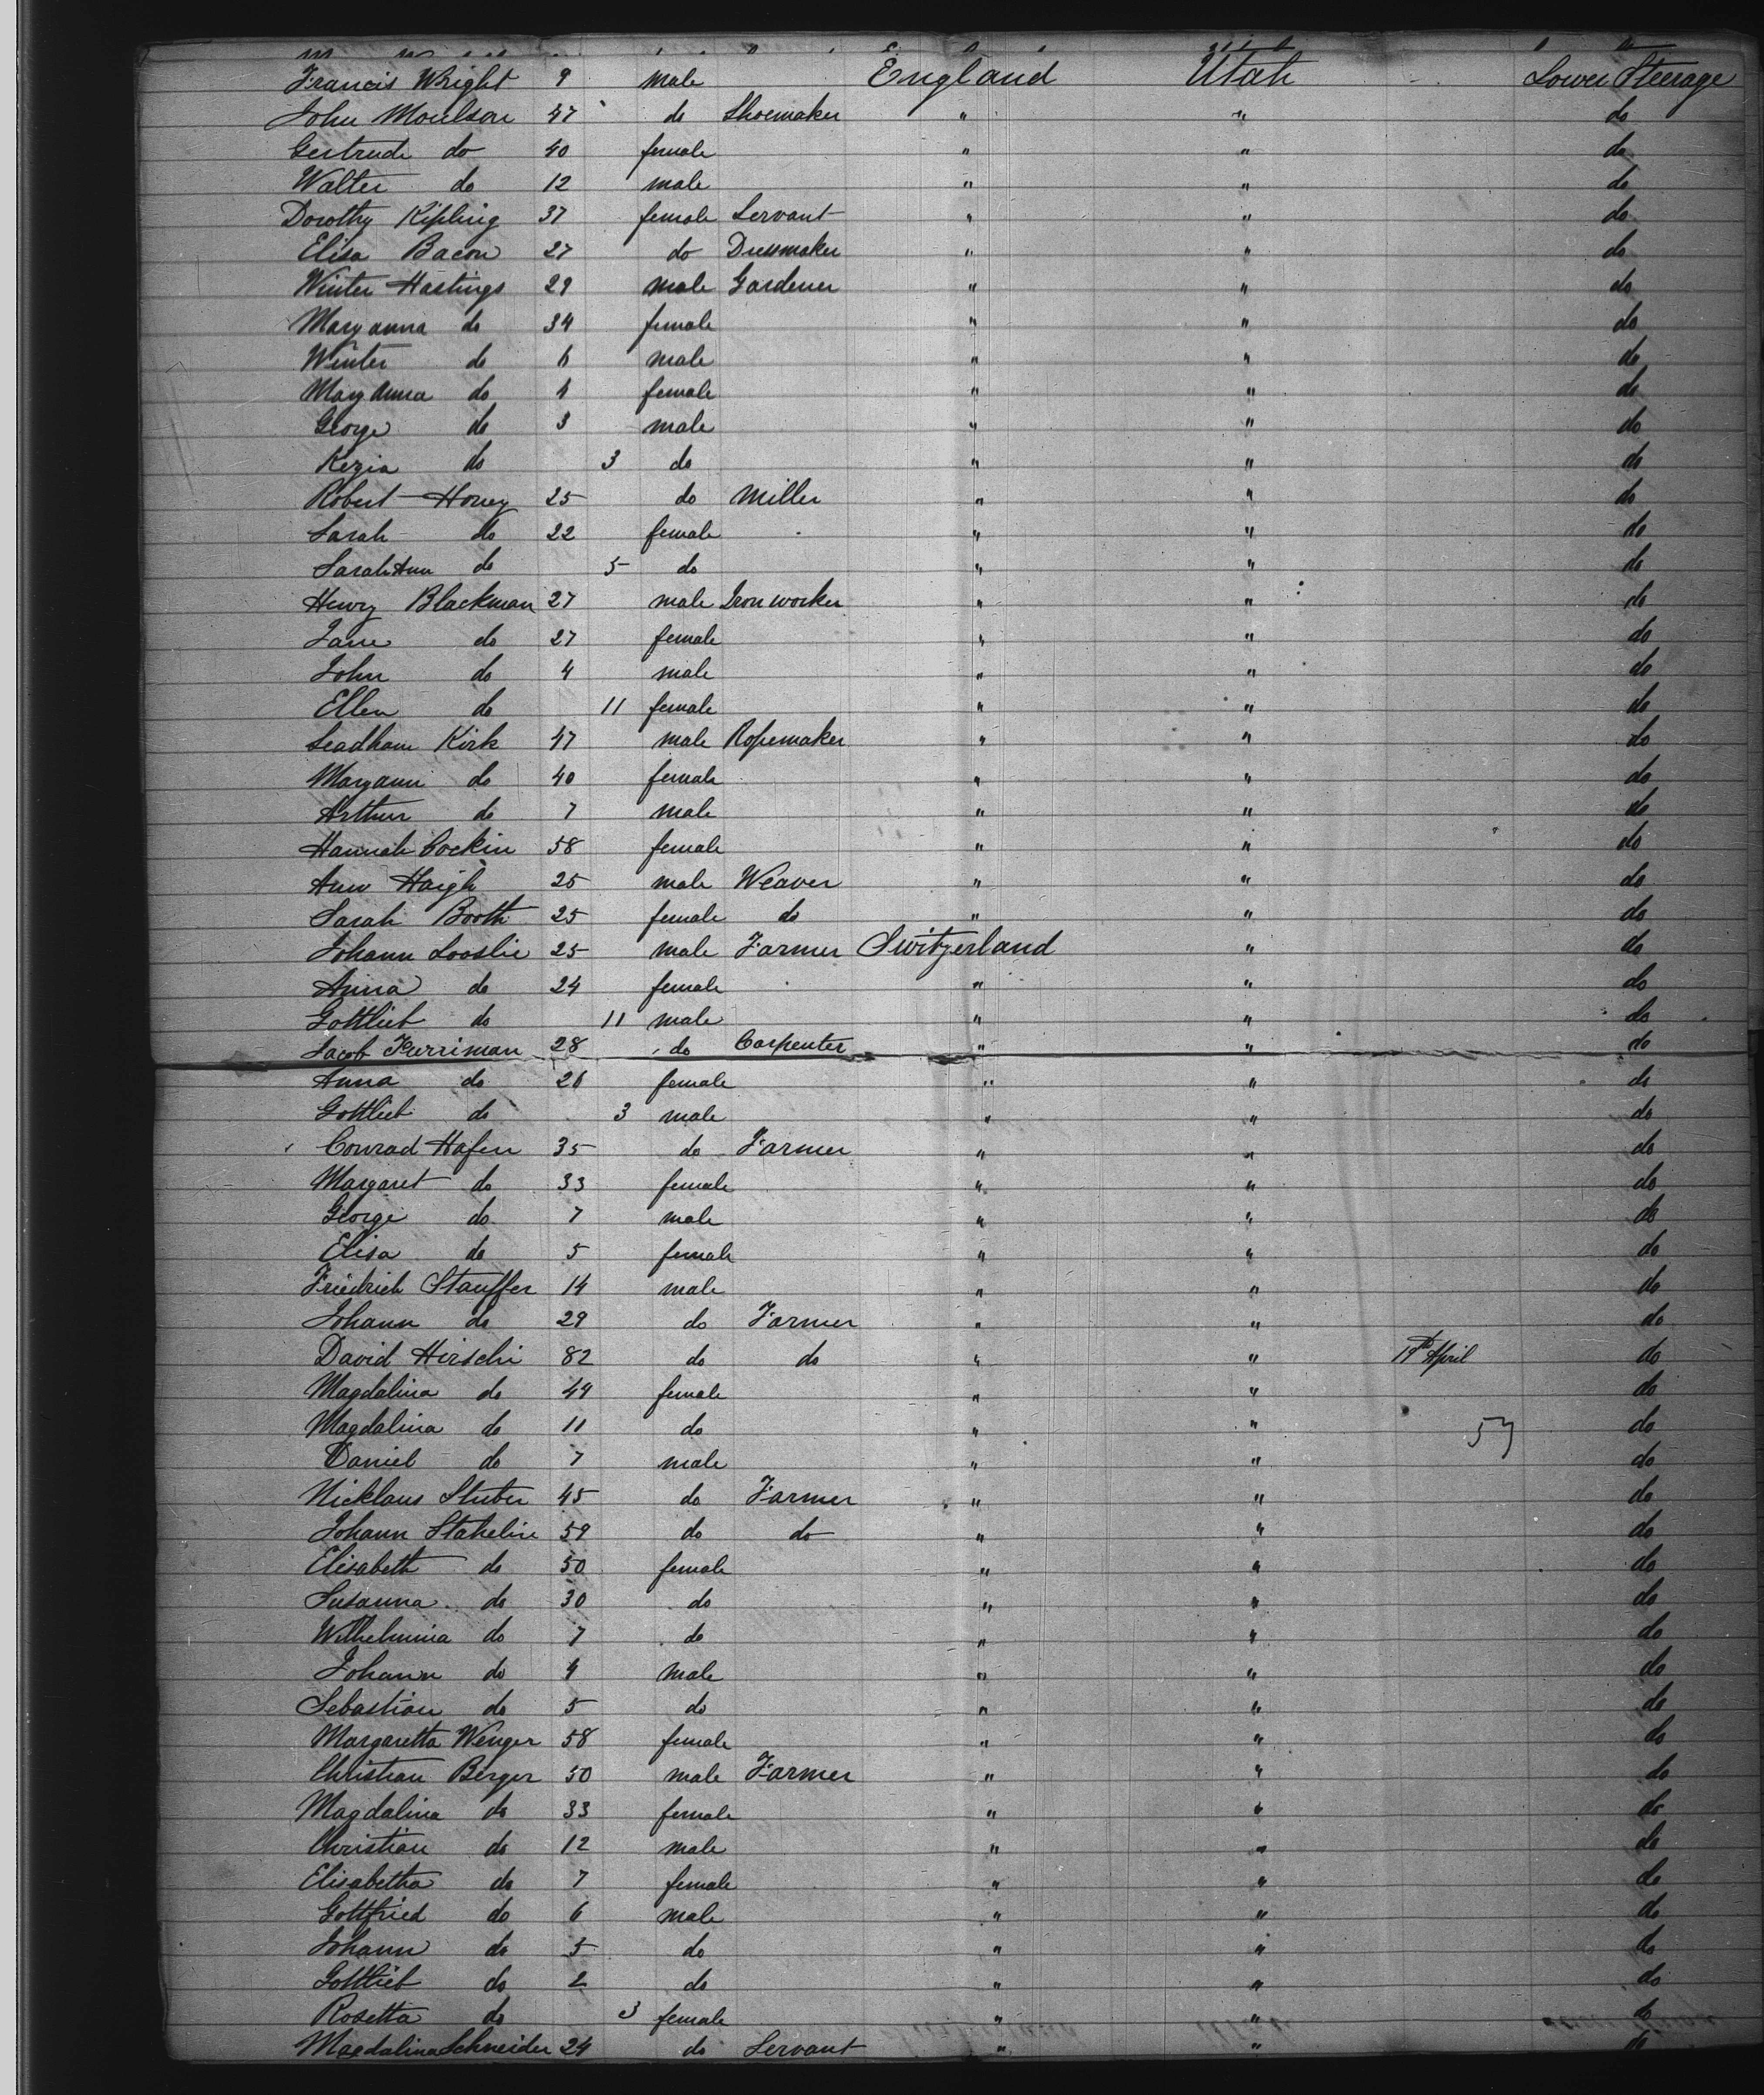 Francis Wright 9 male England Utah Lower Steerage
John Moulson 47 do Shoemaker " " do
Gertrude do 40 female " " do
Walter do 12 male " " do
Dorothy Kipling 37 female Servant " " do
Elisa Bacon 27 do Dressmaker " " do
Winter Hastings 29 male Gardener " " do
Mary anna do 34 female " " do
Winter do 6 male " " do
Mary Anna do 4 female " " do
George do 3 male " " do
Kezia do 3 do " " do
Robert Honey 25 do Miller " " do
Sarah do 22 female " " do
Sarah Ann do 5 do " " do
Henry Blackman 27 male Iron worker " " do
Jane do 27 female " " do
John do 4 male " " do
Ellen do 11 female " " do
Leadham Kirk 47 male Ropemaker " " do
Maryann do 40 female " " do
Arthur do 7 male " " do
Hannah Cockin 58 female " " do
Ann Haigh 25 male Weaver " " do
Sarah Booth 25 female do " " do
Johann Looslie 25 male Farmer Switzerland " do
Anna do 24 female " " do
Gottlieb do 11 male " " do
Jacob Furriman 28 do Carpenter " " do
Anna do 26 female " " do
Gottlieb do 3 male " " do
Conrad Hafen 35 do Farmer " " do
Margaret do 33 female " " do
George do 7 male " " do
Elisa do 5 female " " do
Friedrich Stauffer 14 male " " do
Johann do 29 do Farmer " " do
David Hirschi 82 do do " " April do
Magdalina do 49 female " " do
Magdalina do 11 do " " 57 do
Daniel do 7 male " " do
Nicklaus Stuber 45 do Farmer " " do
Johann Stahelin 59 do do " " do
Elisabeth do 50 female " " do
Susanna do 30 do " " do
Wilhelmina do 7 do " " do
Johann do 4 male " " do
Sebastian do 5 do " " do
Margaretta Wenger 58 female " " do
Christian Berger 50 male Farmer " " do
Magdalina do 33 female " " do
Christian do 12 male " " do
Elisabetha do 7 female " " do
Gottfried do 6 male " " do
Johann do 5 do " " do
Gottlieb do 2 do " " do
Rosetta do 3 female " " do
Magdalina Schneider 24 do Servant " " do